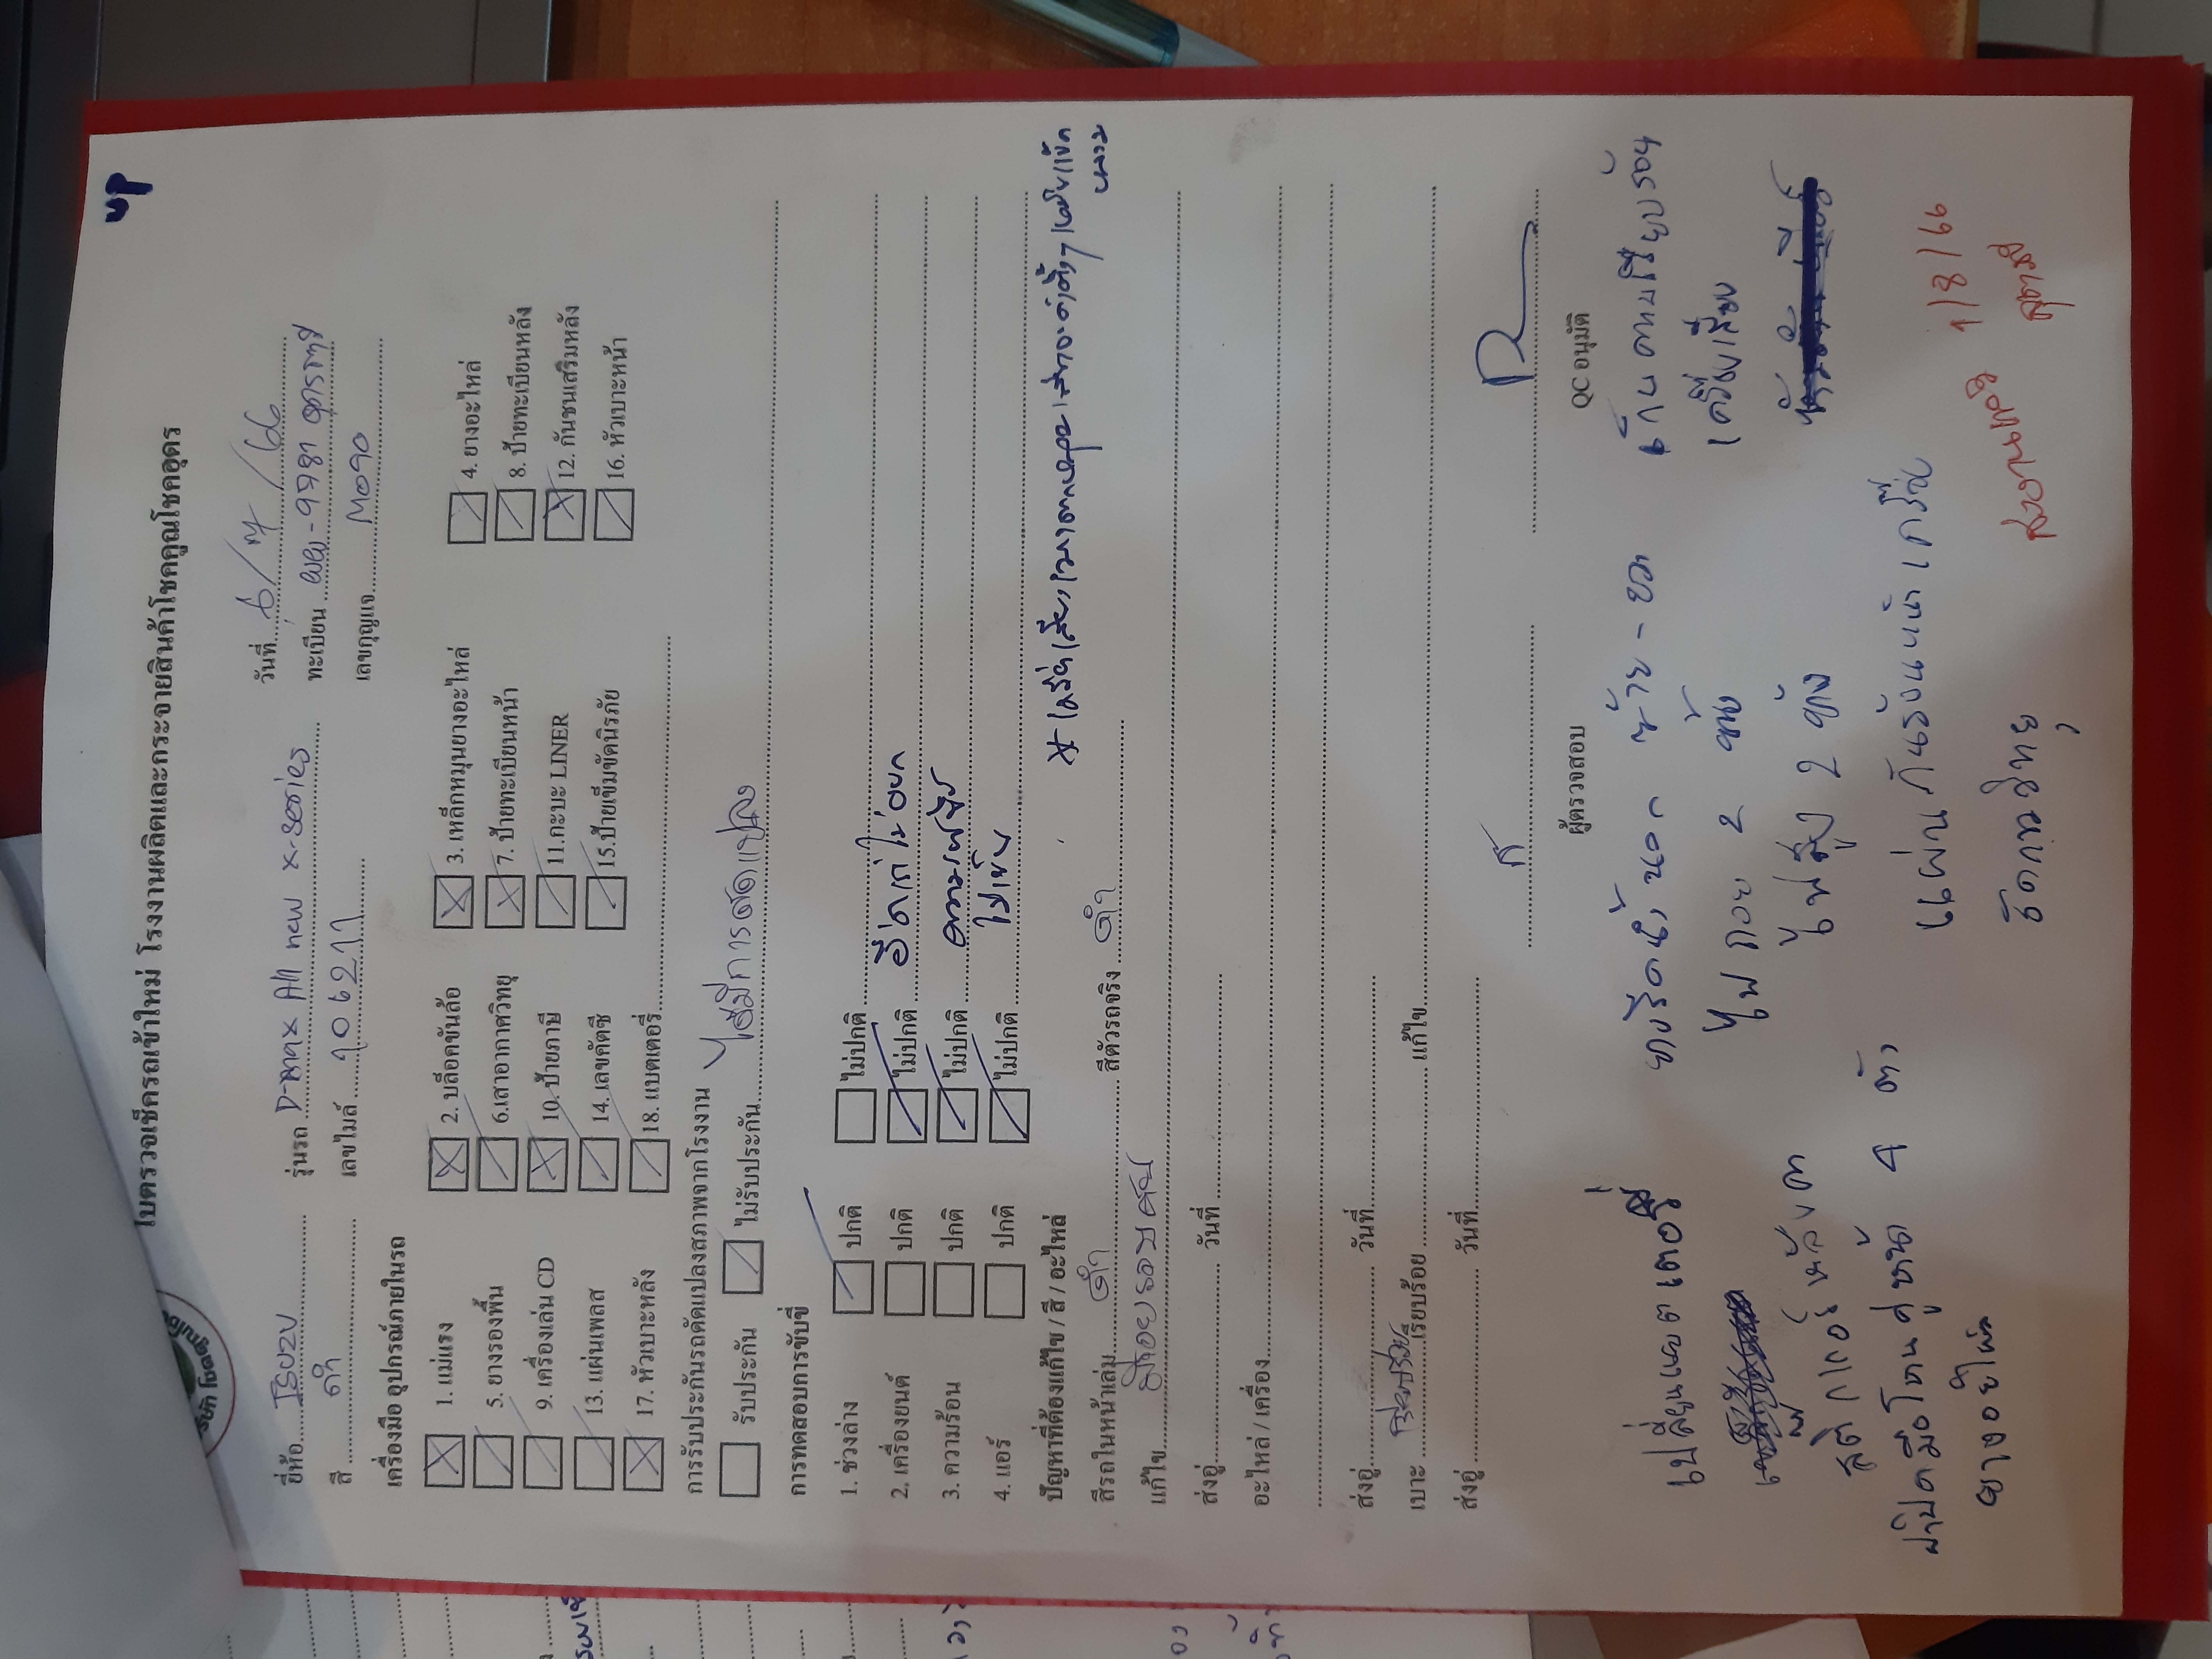 นบ
ใบตรวจเช็ครถเข้าใหม่ โรงงานผลิตและกระจายสินค้าโชคคูณโชคอุดร
วันที่ 6/7/66
ยี่ห้อ ISUZU รุ่นรถ D-max All new x-series ทะเบียน
สี ดำ เลขไมล์ 106211 เลขกุญแจ M090
เครื่องมือ อุปกรณ์ภายในรถ
1. แม่แรง 2. บล็อคขันล้อ 3. เหล็กหมุนยางอะไหล่ 4. ยางอะไหล่
5. ยางรองพื้น 6.เสาอากาศวิทยุ 7. ป้ายทะเบียนหน้า 8. ป้ายทะเบียนหลัง
9. เครื่องเล่น CD 10. ป้ายภาษี 11.กะบะ LINER 12. กันชนเสริมหลัง
13. แผ่นเพลส 14. เลขคัตซี 15.ป้ายเข็มขัดนิรภัย 16. หัวเบาะหน้า
17. หัวเบาะหลัง 18. แบตเตอรี่
การรับประกันรถดัดแปลงสภาพจากโรงงาน
รับประกัน ไม่รับประกัน ไม่มีการดัดแปลง
การทดสอบการขับขี่
1. ช่วงล่าง ปกติ ไม่ปกติ
2. เครื่องยนต์ ปกติ ไม่ปกติ อืดเร่งไม่ออก
3. ความร้อน ปกติ ไม่ปกติ ความร้อนขึ้น
4. แอร์ ปกติ ไม่ปกติ ไม่เย็น
ปัญหาที่ต้องแก้ไข / สี / อะไหล่
สีรถในหน้าเล่ม ดำ สีตัวรถจริง ดำ
แก้ไข มีรอยรอบคัน
ส่งอู่ วันที่
อะไหล่ / เครื่อง
ส่งอู่ วันที่
เบาะ เรียบร้อย แก้ไข
ส่งอู่ วันที่
ผู้ตรวจสอบ QC อนุมัติ
เปลี่ยนแบตเตอรี่ ยางรีดน้ำนอก ซ้าย - ขวา เก็บคาบเรียบร้อย
ไฟถอย 2 ข้าง เครื่องเสียง
สติกเกอร์หลังคา ไฟสูง 2 ข้าง
ฝาปิดมือโหนคู่หน้า 4 ตัว แผ่นกันร้อนหน้าเครื่อง
ยางอะไหล่ จัดการวิทยุ
1/8/66